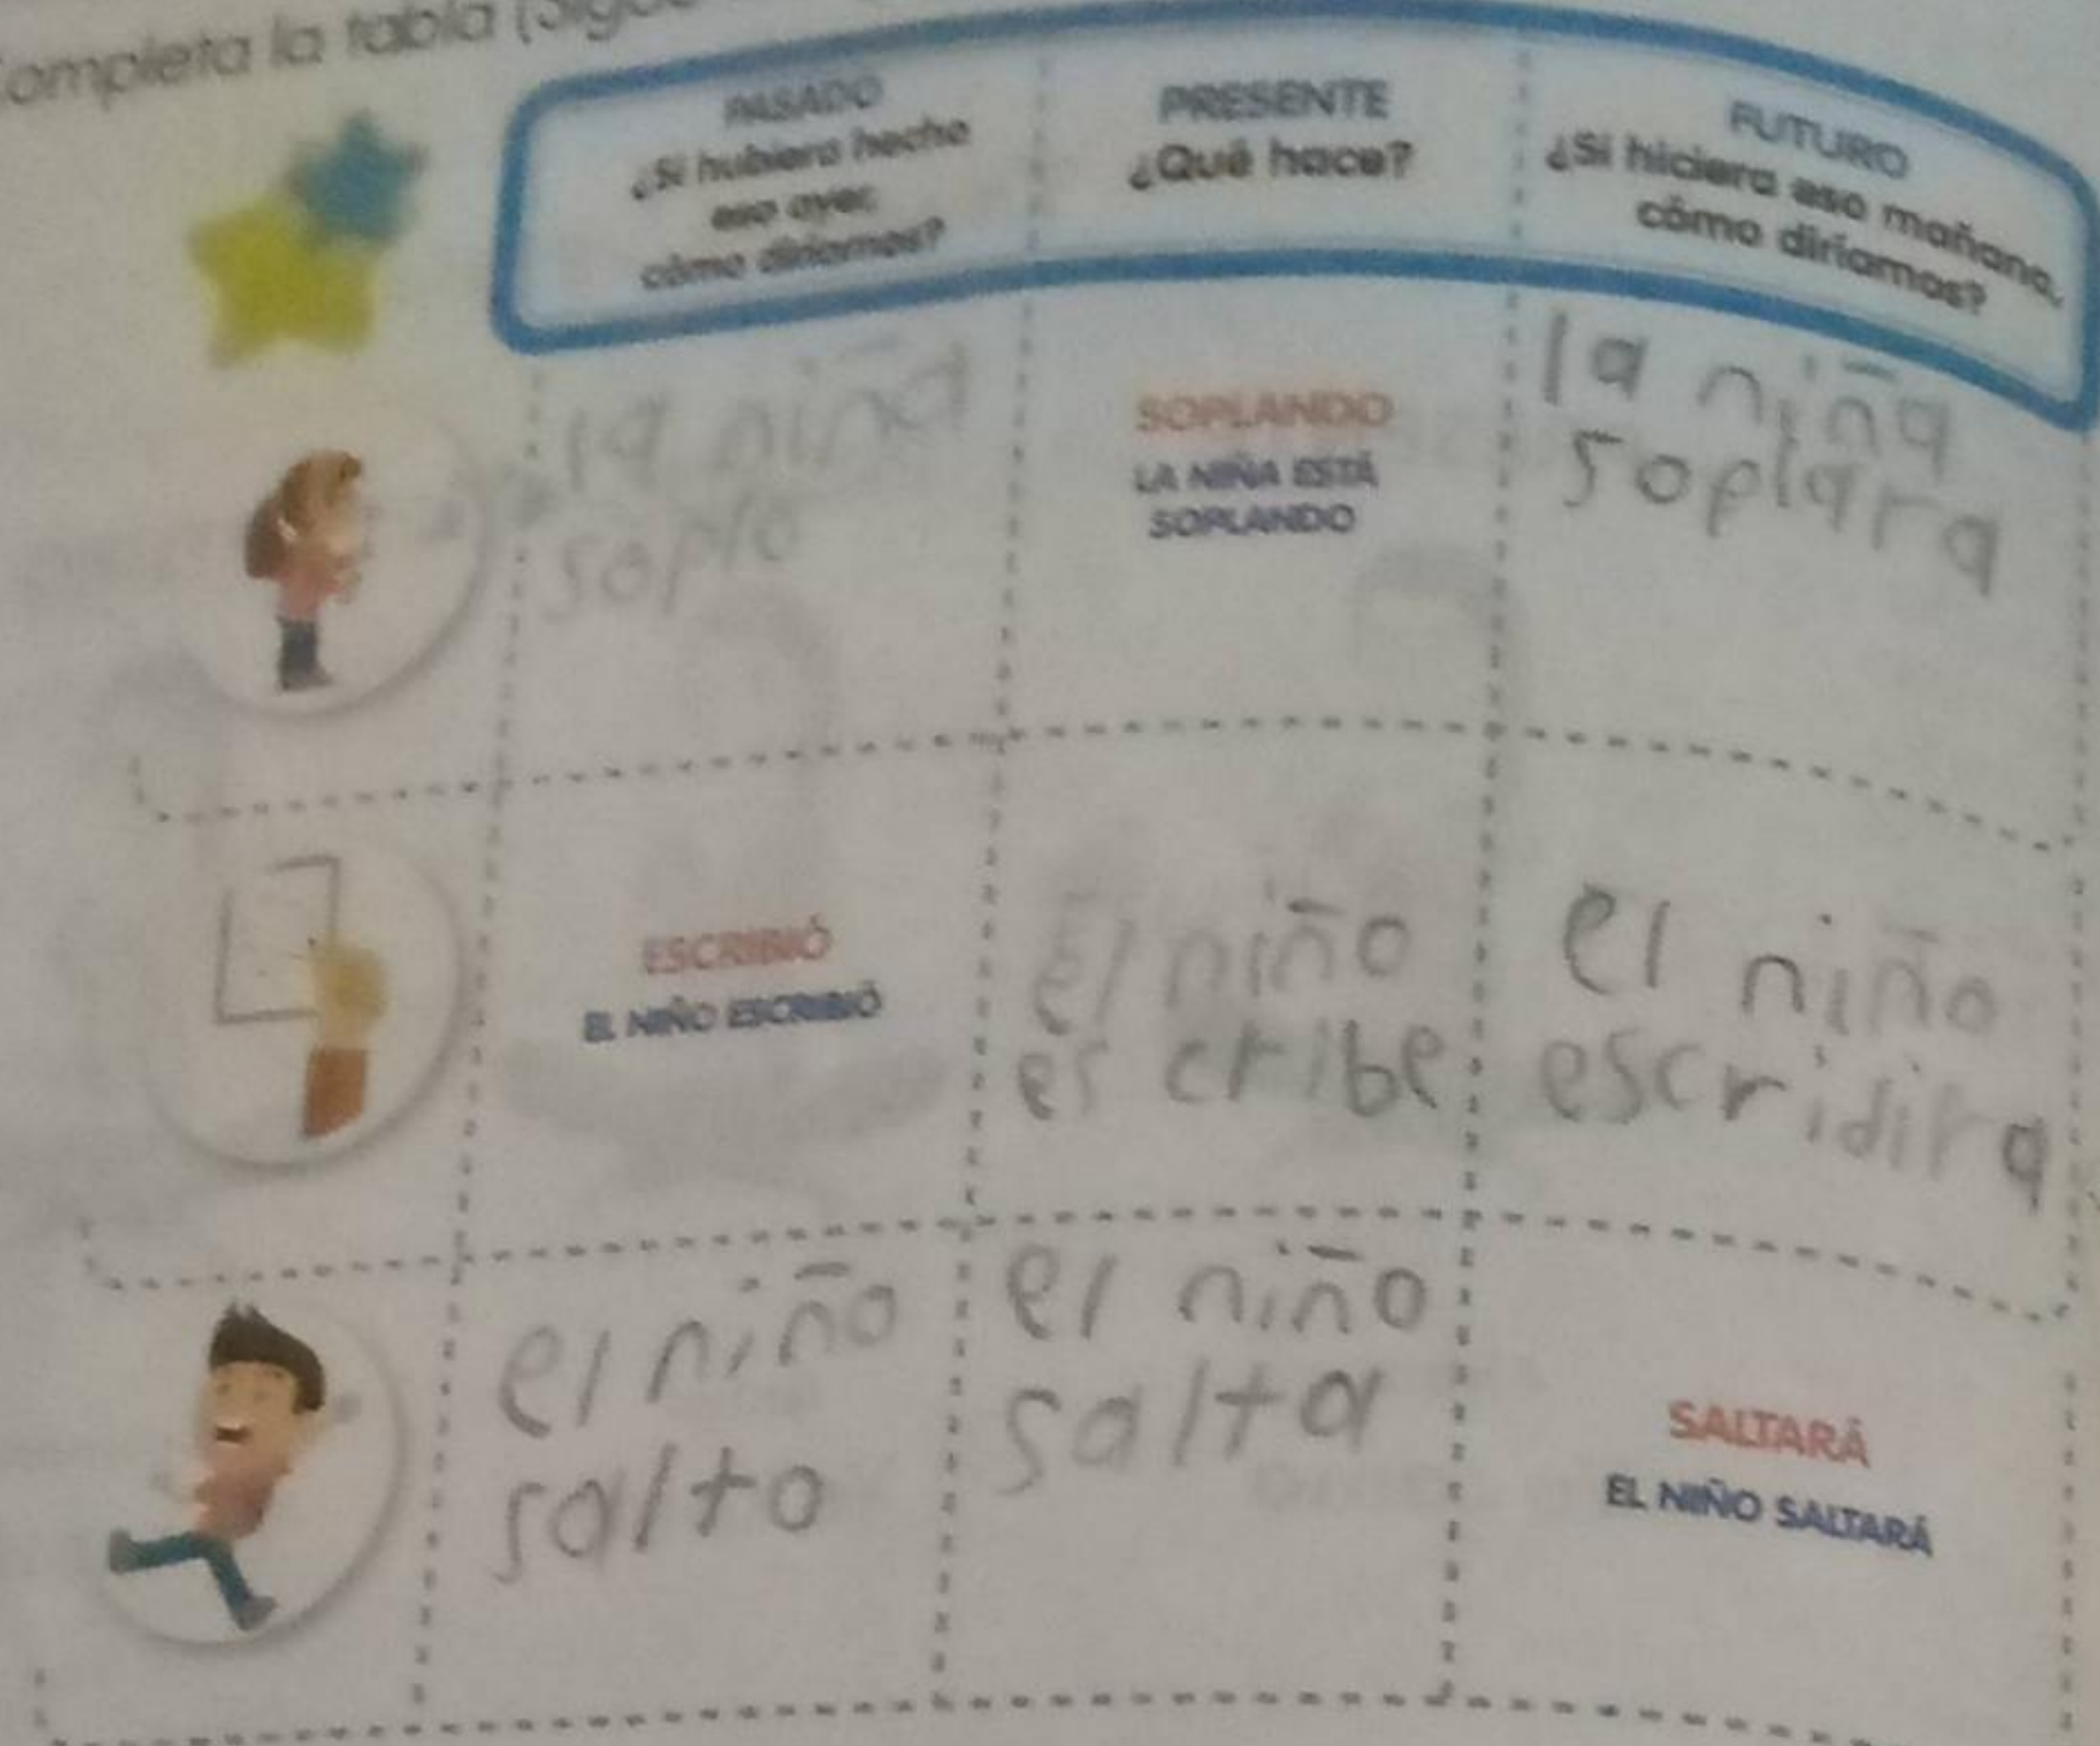 Completa la tabla
PASADO
¿Si hubiera hecho
eso ayer,
cómo diríamos?
PRESENTE
¿Qué hace?
FUTURO
¿Si hiciera eso mañana,
cómo diríamos?
la niña
soplo
SOPLANDO
LA NIÑA ESTÁ
SOPLANDO
la niña
soplara
ESCRIBIÓ
EL NIÑO ESCRIBIÓ
El niño
es cribe
el niño
escridira
el niño
salto
el niño
salta
SALTARÁ
EL NIÑO SALTARÁ